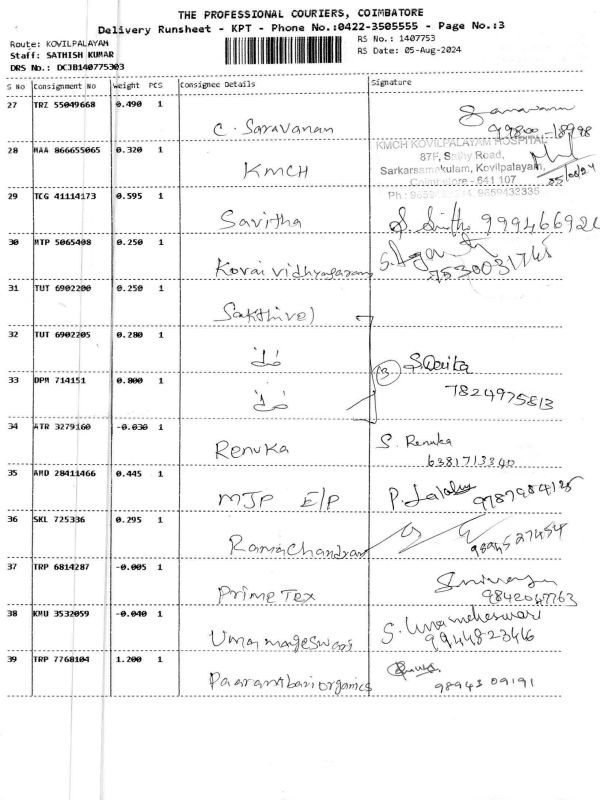 THE PROFESSIONAL COURIERS, COIMBATORE
Delivery Runsheet - KPT - Phone No.:0422-3505555 - Page No.:3
Route: KOVILPALAYAM
RS No.: 1407753
Staff: SATHISH KUMAR
RS Date: 05-Aug-2024
DRS No.: DCJB140775303
S No Consignment No Weight PCS Consignee Details Signature
27 TRZ 55049668 0.490 1
C. Saravanan
28 MAA 866655065 0.320 1
KMCH
KMCH KOVILPALAYAM HOSPITAL
87F, Sathy Road,
Sarkarsamakulam, Kovilpalayam,
Coimbatore - 641 107
05/08/24
29 TCG 41114173 0.595 1
Savitha
30 MTP 5065408 0.250 1
Kovai vidhyashram
7530031745
31 TUT 6902200 0.250 1
Sakthivel
32 TUT 6902205 0.280 1
3
33 DPM 714151 0.800 1
7824975813
34 ATR 3279160 -0.030 1
Renuka
S. Renuka
6381713340
35 AMD 28411466 0.445 1
MJP E/P
36 SKL 725336 0.295 1
Ramachandran
9894527454
37 TRP 6814287 -0.005 1
Prime Tex
9842047763
38 KMU 3532059 -0.040 1
Umamageswari
S. Umamaheswari
9944823466
39 TRP 7768104 1.200 1
Paarambariorganics
98943 09191